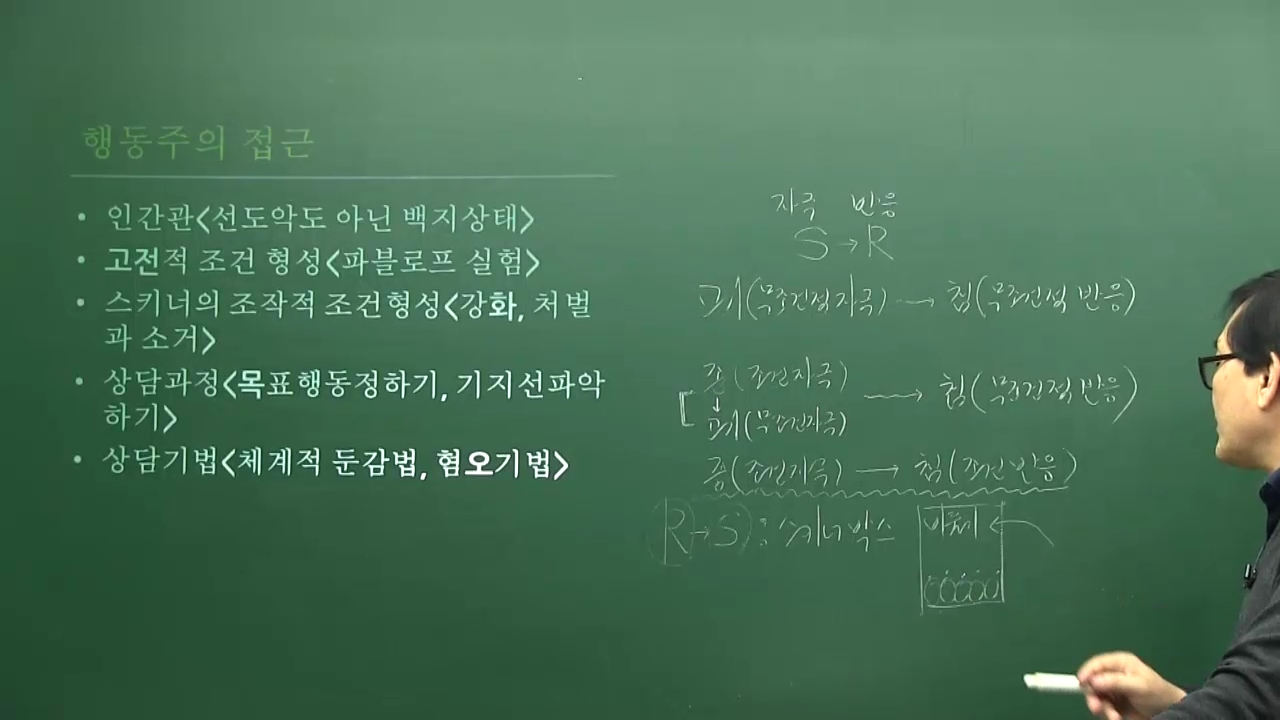 행동주의 접근
• 인간관<선도악도 아닌 백지상태>
• 고전적 조건 형성<파블로프 실험>
• 스키너의 조작적 조건형성<강화, 처벌
과 소거>
• 상담과정<목표행동정하기, 기지선파악
하기>
• 상담기법<체계적 둔감법, 혐오기법>
자극 반응
S → R
고기(무조건적자극) → 침(무조건적 반응)
종(조건자극)
고기(무조건자극) → 침(무조건적 반응)
종(조건자극) → 침(조건반응)
(R → S) : 스키너 박스